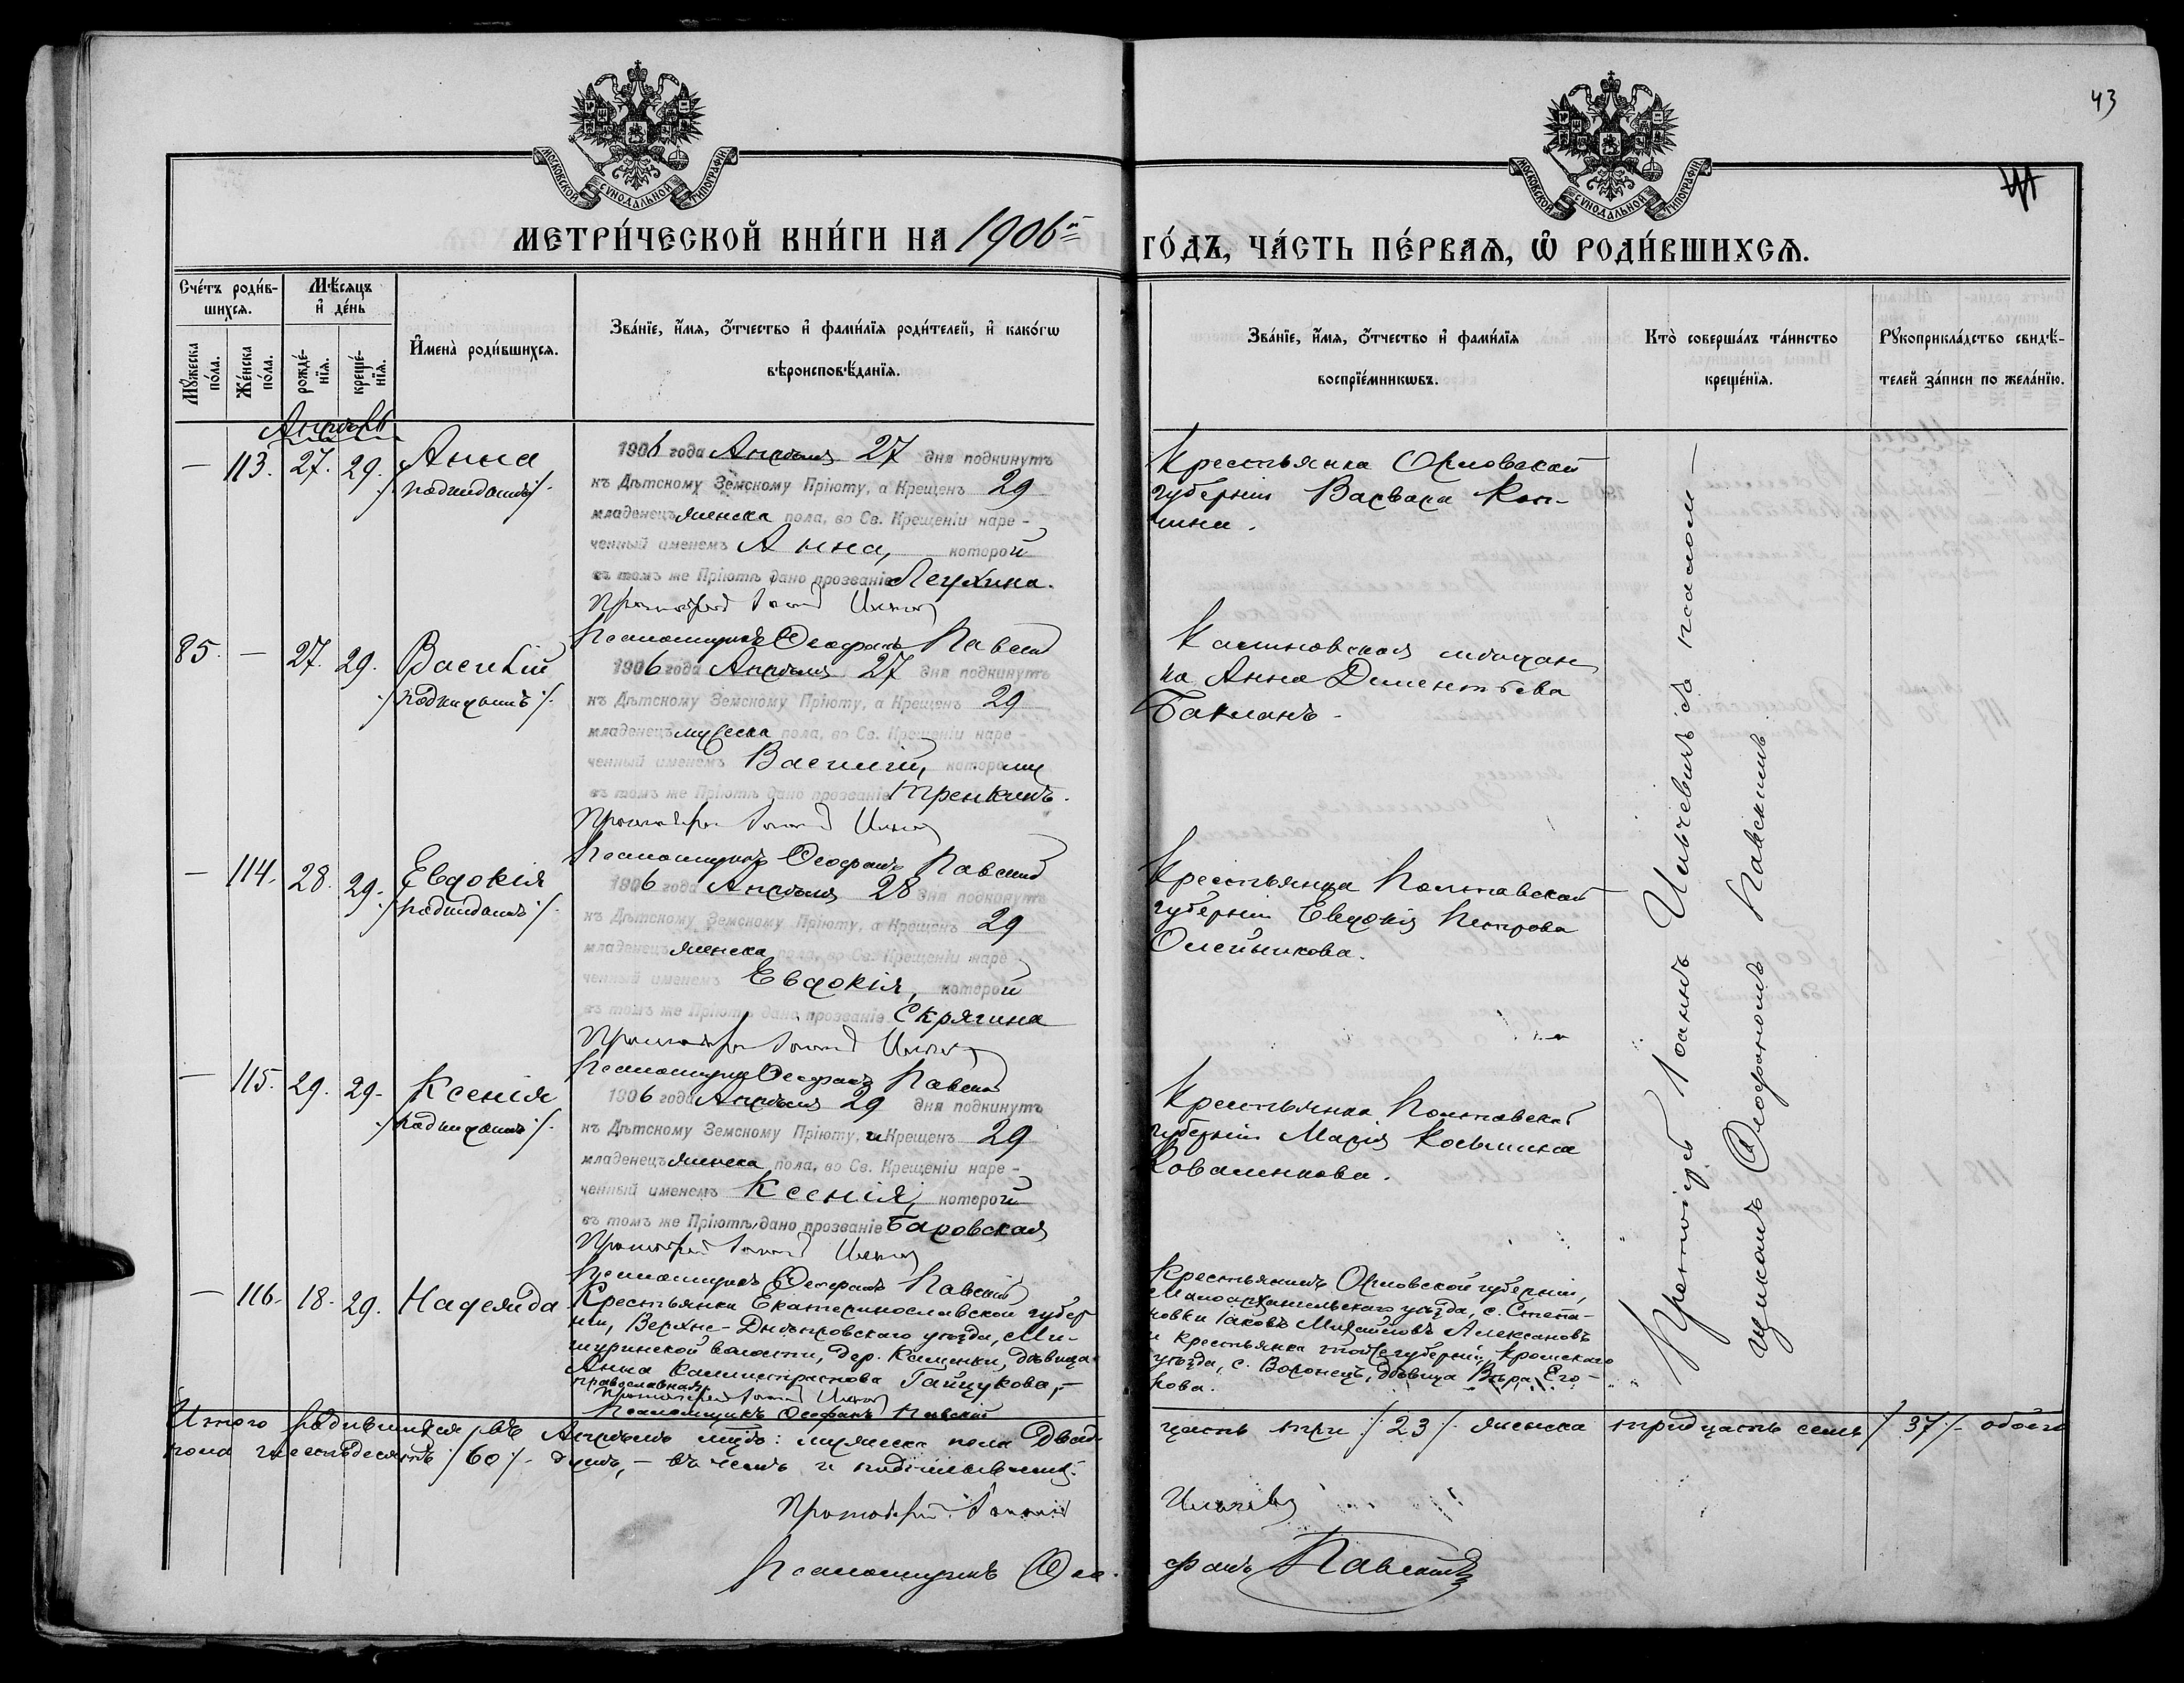 43
МОСКОВСКОЙ СѴНОДАЛЬНОЙ ТИПОГРАФІИ
МОСКОВСКОЙ СѴНОДАЛЬНОЙ ТИПОГРАФІИ
МЕТРИ́ЧЕСКОЙ КНИ́ГИ НА 1906й ГО́ДЪ, ЧА́СТЬ ПЕ́РВАѦ, Ѡ РОДИ́ВШИХСѦ.
Сче́тъ роди́в-
шихсѧ.
Мꙋ́жеска по́ла.
Же́нска по́ла.
Мѣ́сѧцъ
и҆ де́нь
рожде́-
нїѧ.
креще́-
нїѧ.
И҆мена̀ роди́вшихсѧ.
Зва́нїе, и҆́мѧ, о҆́тчество и҆ фами́лїѧ роди́телей, и҆ како́гѡ
вѣроисповѣ́данїѧ.
Зва́нїе, и҆́мѧ, о҆́тчество и҆ фами́лїѧ
воспрїе́мникѡвъ.
Кто̀ соверша́лъ та́инство
креще́нїѧ.
Рꙋкоприкла́дство свидѣ́-
телей за́писи по жела́нїю.
Апрѣль
— 113. 27. 29. Анна
/подкидышъ/.
1906 года Апрѣля 27 дня подкинутъ
къ Дѣтскому Земскому Пріюту, а Крещенъ 29
младенецъ женска пола, во Св. Крещеніи наре-
ченный именемъ Анна, которой
въ томъ же Пріютѣ дано прозваніе Леухина.
Протоіерей Іоаннъ
Псаломщикъ Ѳеофанъ Павскій
Крестьянка Орловской
губерніи Варвара Коп-
кина.
85. — 27. 29. Василій
/подкидышъ/.
1906 года Апрѣля 27 дня подкинутъ
къ Дѣтскому Земскому Пріюту, а Крещенъ 29
младенецъ мужеска пола, во Св. Крещеніи наре-
ченный именемъ Василій, которому
въ томъ же Пріютѣ дано прозваніе Тренкинъ.
Протоіерей Іоаннъ
Псаломщикъ Ѳеофанъ Павскій
мѣщан
ка Анна Дементьева
Бакланъ.
— 114. 28. 29. Евдокія
/подкидышъ/.
1906 года Апрѣля 28 дня подкинутъ
къ Дѣтскому Земскому Пріюту, а Крещенъ 29
младенецъ женска пола, во Св. Крещеніи наре-
ченный именемъ Евдокія, которой
въ томъ же Пріютѣ дано прозваніе Скрягина
Протоіерей Іоаннъ
Псаломщикъ Ѳеофанъ Павскій
Крестьянка Полтавской
губерніи Евдокія Петрова
Олейникова.
— 115. 29. 29. Ксенія
/подкидышъ/.
1906 года Апрѣля 29 дня подкинутъ
къ Дѣтскому Земскому Пріюту, и Крещенъ 29
младенецъ женска пола, во Св. Крещеніи наре-
ченный именемъ Ксенія, которой
въ томъ же Пріютѣ дано прозваніе Баровская
Протоіерей Іоаннъ
Псаломщикъ Ѳеофанъ Павскій
Крестьянка Полтавской
губерніи Марія Косьмина
Коваленкова.
— 116. 18. 29. Надежда
Крестьянка Екатеринославской губер
ніи, Верхне-Днѣпровскаго уѣзда, Ми-
шуринской волости, дер. Кащенки, дѣвица
Анна Каллистратова Гайдукова, —
православная.
Протоіерей Іоаннъ
Псаломщикъ Ѳеофанъ Павскій
Крестьянинъ Орловской губерніи,
Малоархангельскаго уѣзда, с. Степа-
новки Іаковъ Михайловъ Алексановъ
и крестьянка той же губерніи, Кромскаго
уѣзда, с. Воронецъ, дѣвица Вѣра Его-
рова.
Протоіерей Іоаннъ Ильчевичъ съ псалом—
щикомъ Ѳеофаномъ Павскимъ
Итого родившихся въ Апрѣлѣ мцѣ: мужеска пола двад-
цать три /23/. женска тридцать семь /37/. обоего
пола шестьдесятъ /60/. душъ, —
Протоіерей Іоаннъ
Псаломщикъ Ѳео
фанъ Павскій